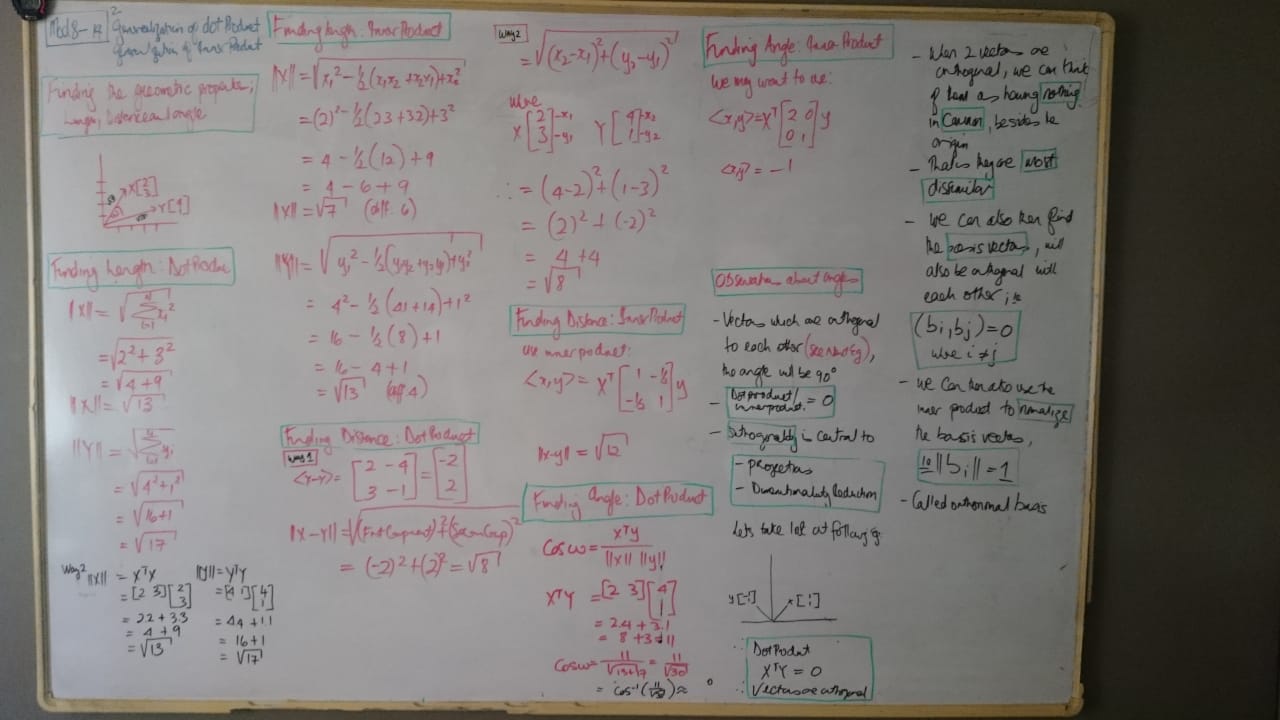 Mod 8-12
Generalization of dot Product
Generalization of Inner Product
Finding the geometric properties;
Length, Distance and angle
X[2 3]
Y[4 1]
Finding Length: Dot Produc
||X|| = √Σxi²
= √2² + 3²
= √4+9
||X|| = √13
||Y|| = √Σyi
= √4²+1²
= √16+1
= √17
Way 2
||X|| = XᵀX
= [2 3][2 3]
= 2.2 + 3.3
= 4 + 9
= √13
||Y|| = YᵀY
= [4 1][4 1]
= 4.4 + 1.1
= 16+1
= √17
Finding length: Inner Product
||X|| = √x₁² - ½(x₁x₂ + x₂x₁) + x₂²
= (2)² - ½(2.3 + 3.2) + 3²
= 4 - ½(12) + 9
= 4 - 6 + 9
||X|| = √7 (diff. 6)
||Y|| = √y₁² - ½(y₁y₂ + y₂y₁) + y₂²
= 4² - ½(4.1 + 1.4) + 1²
= 16 - ½(8) + 1
= 16 - 4 + 1
= √13 (diff 4)
Finding Distance: Dot Product
Way 1
<X-Y> = [2 - 4 3 - 1] = [-2 2]
||X-Y|| = √(First Component)² + (Second Comp)²
= (-2)² + (2)² = √8
Way 2
= √(x₂-x₁)² + (y₂-y₁)²
where
X[2 3] -x₁ -y₁ Y[4 1] -x₂ -y₂
∴ = (4-2)² + (1-3)²
= (2)² + (-2)²
= 4 + 4
= √8
Finding Distance: Inner Product
use inner product:
<x,y> = Xᵀ[1 -½ -½ 1]y
||x-y|| = √12
Finding Angle: Dot Product
Cos w = XᵀY / ||X|| ||Y||
XᵀY = [2 3][4 1]
= 2.4 + 3.1
= 8 + 3 = 11
Cos w = 11/√13+17 = 11/√30
= cos⁻¹(11/√30) ≈ °
Finding Angle: Inner Product
We may want to use:
<x,y> = Xᵀ[2 0 0 1]y
<x,y> = -1
Observations about angles
- Vectors which are orthogonal
to each other (see next Eg),
the angle will be 90°
- Dot product/
inner product = 0
- Orthogonality is central to
- projections
- Dimensionality Reduction
Lets take look at following eg:
y[-1 1] x[1 1]
∴ Dot Product
XᵀY = 0
∴ Vectors are orthogonal
- When 2 vectors are
orthogonal, we can think
of them as having nothing
in Common, besides the
origin
- That is they are most
dissimilar
- We can also then find
the basis vectors, will
also be orthogonal with
each other; ie
(bi, bj) = 0
where i ≠ j
- We can then also use the
inner product to normalize
the basis vectors,
ie ||bi|| = 1
- Called orthonormal basis